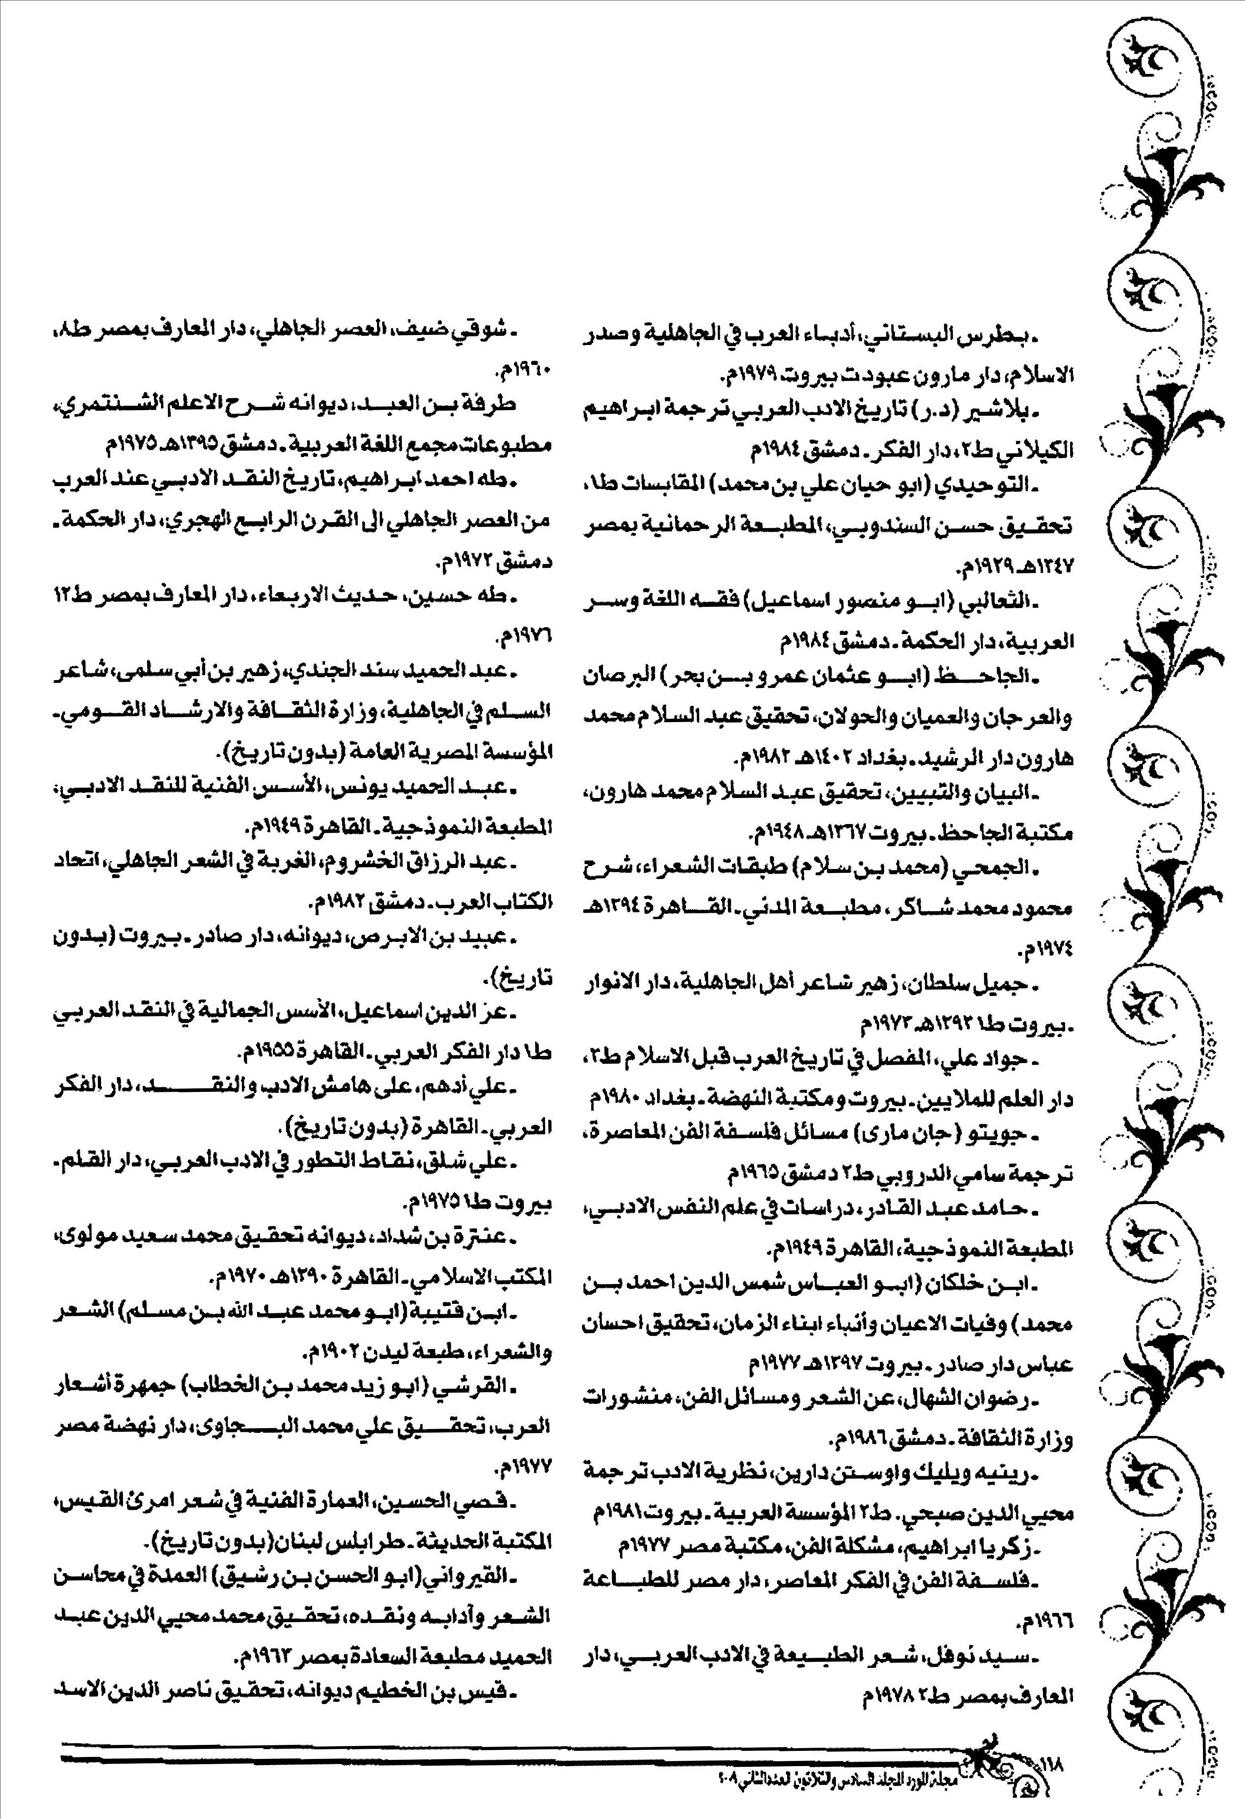 ـ بطرس البستاني، أدباء العرب في الجاهلية وصدر
الاسلام، دار مارون عبودت بيروت ١٩٧٩م.
ـ بلاشير (د.ر) تاريخ الادب العربي ترجمة ابراهيم
الكيلاني ط٢، دار الفكر ـ دمشق ١٩٨٤م
ـ التوحيدي (ابو حيان علي بن محمد) المقابسات ط١،
تحقيق حسن السندوبي، المطبعة الرحمانية بمصر
١٣٤٧هـ ١٩٢٩م.
ـ الثعالبي (ابو منصور اسماعيل) فقه اللغة وسر
العربية، دار الحكمة ـ دمشق ١٩٨٤م
ـ الجاحظ (ابو عثمان عمرو بن بحر) البرصان
والعرجان والعميان والحولان، تحقيق عبد السلام محمد
هارون دار الرشيد ـ بغداد ١٤٠٢هـ ١٩٨٢م.
ـ البيان والتبيين، تحقيق عبد السلام محمد هارون،
مكتبة الجاحظ ـ بيروت ١٣٦٧هـ ١٩٤٨م.
ـ الجمحي (محمد بن سلام) طبقات الشعراء، شرح
محمود محمد شاكر، مطبعة المدني ـ القاهرة ١٣٩٤هـ
١٩٧٤م.
ـ جميل سلطان، زهير شاعر أهل الجاهلية، دار الانوار
ـ بيروت ط١ ١٣٩٣هـ ١٩٧٣م
ـ جواد علي، المفصل في تاريخ العرب قبل الاسلام ط٣،
دار العلم للملايين ـ بيروت ومكتبة النهضة ـ بغداد ١٩٨٠م
ـ جويتو (جان مارى) مسائل فلسفة الفن المعاصرة،
ترجمة سامي الدروبي ط٢ دمشق ١٩٦٥م
ـ حامد عبد القادر، دراسات في علم النفس الادبي،
المطبعة النموذجية، القاهرة ١٩٤٩م.
ـ ابن خلكان (ابو العباس شمس الدين احمد بن
محمد) وفيات الاعيان وأنباء ابناء الزمان، تحقيق احسان
عباس دار صادر ـ بيروت ١٣٩٧هـ ١٩٧٧م
ـ رضوان الشهال، عن الشعر ومسائل الفن، منشورات
وزارة الثقافة ـ دمشق ١٩٨٦م.
ـ رينيه ويليك واوستن دارين، نظرية الادب ترجمة
محيي الدين صبحي ـ ط٢ المؤسسة العربية ـ بيروت ١٩٨١م
ـ زكريا ابراهيم، مشكلة الفن، مكتبة مصر ١٩٧٧م
ـ فلسفة الفن في الفكر المعاصر، دار مصر للطباعة
١٩٦٦م.
ـ سيد نوفل، شعر الطبيعة في الادب العربي، دار
المعارف بمصر ط٢ ١٩٧٨م
ـ شوقي ضيف، العصر الجاهلي، دار المعارف بمصر ط٨،
١٩٦٠م.
طرفة بن العبد، ديوانه شرح الاعلم الشنتمري،
مطبوعات مجمع اللغة العربية ـ دمشق ١٣٩٥هـ ١٩٧٥م
ـ طه احمد ابراهيم، تاريخ النقد الادبي عند العرب
من العصر الجاهلي الى القرن الرابع الهجري، دار الحكمة ـ
دمشق ١٩٧٢م.
ـ طه حسين، حديث الاربعاء، دار المعارف بمصر ط١٢
١٩٧٦م.
ـ عبد الحميد سند الجندي، زهير بن أبي سلمى، شاعر
السلم في الجاهلية، وزارة الثقافة والارشاد القومي ـ
المؤسسة المصرية العامة (بدون تاريخ).
ـ عبد الحميد يونس، الأسس الفنية للنقد الادبي،
المطبعة النموذجية ـ القاهرة ١٩٤٩م.
ـ عبد الرزاق الخشروم، الغربة في الشعر الجاهلي، اتحاد
الكتاب العرب ـ دمشق ١٩٨٢م.
ـ عبيد بن الابرص، ديوانه، دار صادر ـ بيروت (بدون
تاريخ).
ـ عز الدين اسماعيل، الأسس الجمالية في النقد العربي
ط١ دار الفكر العربي ـ القاهرة ١٩٥٥م.
ـ علي أدهم، على هامش الادب والنقد، دار الفكر
العربي ـ القاهرة (بدون تاريخ).
ـ علي شلق، نقاط التطور في الادب العربي، دار القلم ـ
بيروت ط١ ١٩٧٥م.
ـ عنترة بن شداد، ديوانه تحقيق محمد سعيد مولوى،
المكتب الاسلامي ـ القاهرة ١٣٩٠هـ ١٩٧٠م.
ـ ابن قتيبة (ابو محمد عبد الله بن مسلم) الشعر
والشعراء، طبعة ليدن ١٩٠٢م.
ـ القرشي (ابو زيد محمد بن الخطاب) جمهرة أشعار
العرب، تحقيق علي محمد البجاوى، دار نهضة مصر
١٩٧٧م.
ـ قصي الحسين، العمارة الفنية في شعر امرئ القيس،
المكتبة الحديثة ـ طرابلس لبنان (بدون تاريخ).
ـ القيرواني (ابو الحسن بن رشيق) العمدة في محاسن
الشعر وآدابه ونقده، تحقيق محمد محيي الدين عبد
الحميد مطبعة السعادة بمصر ١٩٦٣م.
ـ قيس بن الخطيم ديوانه، تحقيق ناصر الدين الاسد
١١٨
مجلة المورد المجلد السادس والثلاثون العدد الثاني ٢٠٠٩